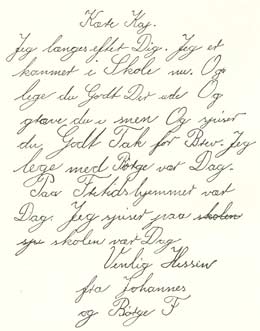 Kære Kaj.
Jeg længes efter Dig. Jeg er
kommet i Skole nu. Og
lege du Godt Der ude Og
grave du i sneen Og spiser
du Godt Tak for Brev. Jeg
lege med Børge var Dag.
Paa Fritidshjemmet vær
Dag. Jeg spiser paa skolen
spi skolen vær Dag
Venlig Hissen
fra Johannes
og Børge F